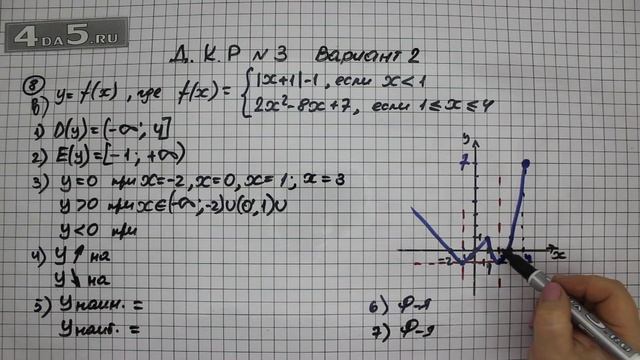 4DA5.RU
Д. К. Р № 3 Вариант 2
8
в) y = f(x), где f(x) = { |x+1|-1, если x<1
2x²-8x+7, если 1≤x≤4
1) D(y)=(-∞; 4]
2) E(y)=[-1; +∞)
3) y=0 при x=-2, x=0, x=1; x=3
y>0 при x∈(-∞;-2)∪(0,1)∪
y<0 при
4) y↑ на
y↓ на
5) y наим. =
y наиб. =
6) Ф-я
7) Ф-я
y
7
1
-2
1
4
x